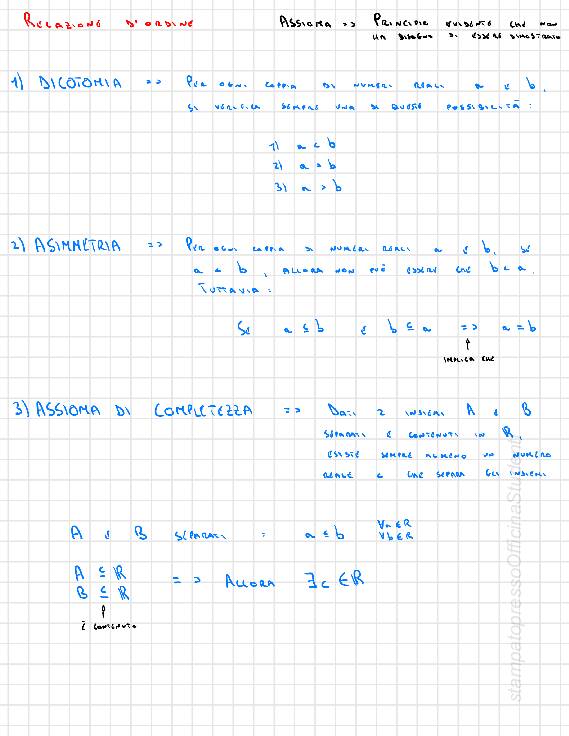 RELAZIONE D'ORDINE
ASSIOMA => PRINCIPIO EVIDENTE CHE NON
HA BISOGNO DI ESSERE DIMOSTRATO
1) DICOTOMIA => PER OGNI COPPIA DI NUMERI REALI a E b,
SI VERIFICA SEMPRE UNA DI QUESTE POSSIBILITÀ:
1) a < b
2) a = b
3) a > b
2) ASIMMETRIA => PER OGNI COPPIA DI NUMERI REALI a E b, SE
a < b, ALLORA NON PUÒ ESSERE CHE b < a.
TUTTAVIA:
SE a ≤ b E b ≤ a => a = b
IMPLICA CHE
3) ASSIOMA DI COMPLETEZZA => DATI 2 INSIEMI A E B
SEPARATI E CONTENUTI IN ℝ,
ESISTE SEMPRE ALMENO UN NUMERO
REALE c CHE SEPARA GLI INSIEMI
A E B SEPARATI : a ≤ b ∀a∈ℝ
∀b∈ℝ
A ⊆ ℝ
B ⊆ ℝ => ALLORA ∃c ∈ ℝ
È CONTENUTO
stampatopressoOfficinaStudenti